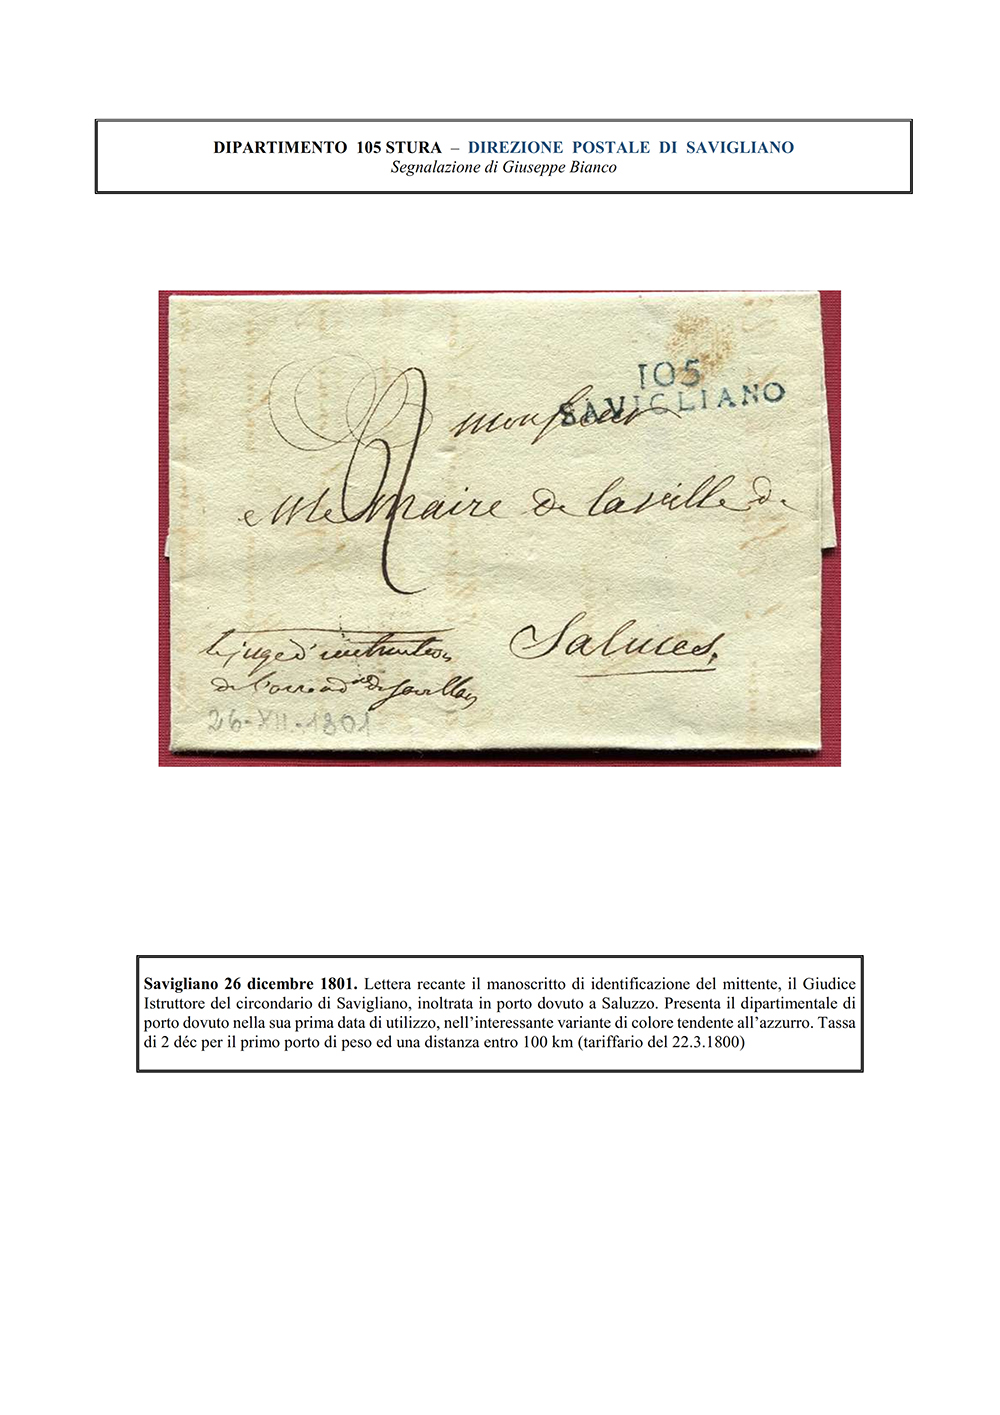 DIPARTIMENTO 105 STURA – DIREZIONE POSTALE DI SAVIGLIANO
Segnalazione di Giuseppe Bianco
105
SAVIGLIANO
2
monsieur
Le maire de la ville de
Saluces.
Le juge d'instruction
de
26-XII-1801
Savigliano 26 dicembre 1801. Lettera recante il manoscritto di identificazione del mittente, il Giudice
Istruttore del circondario di Savigliano, inoltrata in porto dovuto a Saluzzo. Presenta il dipartimentale di
porto dovuto nella sua prima data di utilizzo, nell’interessante variante di colore tendente all’azzurro. Tassa
di 2 déc per il primo porto di peso ed una distanza entro 100 km (tariffario del 22.3.1800)